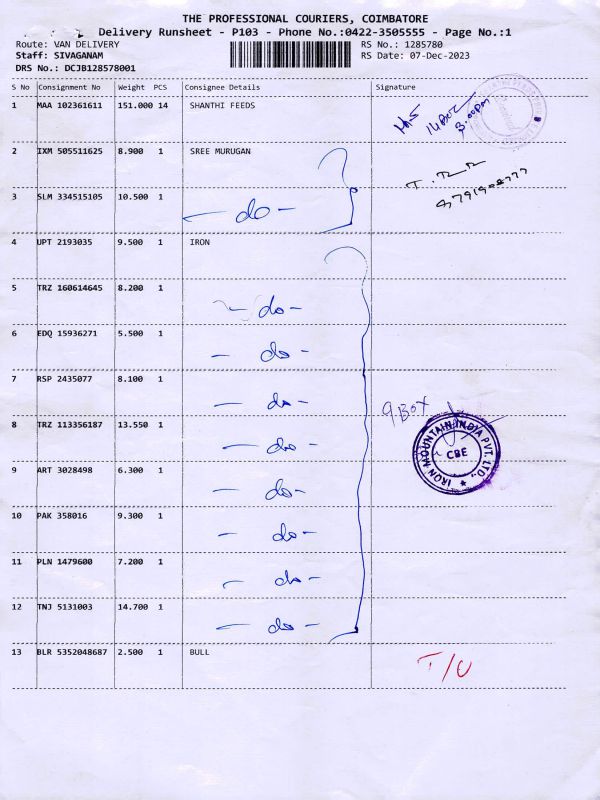 THE PROFESSIONAL COURIERS, COIMBATORE
Delivery Runsheet - P103 - Phone No.:0422-3505555 - Page No.:1
Route: VAN DELIVERY RS No.: 1285780
Staff: SIVAGANAM RS Date: 07-Dec-2023
DRS No.: DCJB128578001
S No Consignment No Weight PCS Consignee Details Signature
1 MAA 102361611 151.000 14 SHANTHI FEEDS
14 Box
3.00pm
2 IXM 505511625 8.900 1 SREE MURUGAN
3 SLM 334515105 10.500 1 - do -
4 UPT 2193035 9.500 1 IRON
5 TRZ 160614645 8.200 1 - do -
6 EDQ 15936271 5.500 1 - do -
7 RSP 2435077 8.100 1 - do -
9 Box
8 TRZ 113356187 13.550 1 - do -
IRON MOUNTAIN INDIA PVT. LTD.,
CBE
9 ART 3028498 6.300 1 - do -
10 PAK 358016 9.300 1 - do -
11 PLN 1479600 7.200 1 - do -
12 TNJ 5131003 14.700 1 - do -
13 BLR 5352048687 2.500 1 BULL T/U